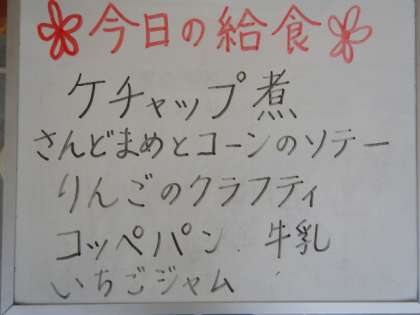 今日の給食
ケチャップ煮
さんどまめとコーンのソテー
りんごのクラフティ
コッペパン 牛乳
いちごジャム